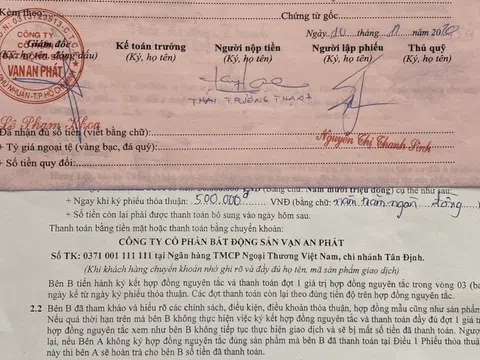 Kèm theo
Chứng từ gốc
Ngày 10 tháng 11 năm 20
Giám đốc Kế toán trưởng Người nộp tiền Người lập phiếu Thủ quỹ
(Ký, họ tên, đóng dấu) (Ký, họ tên) (Ký, họ tên) (Ký, họ tên) (Ký, họ tên)
CÔNG TY
CỔ PHẦN
VẠN AN PHÁT
THÁI TRƯỜNG THẠNH
Lê Phạm Khoa
Nguyễn Thị Thanh Bình
Đã nhận đủ số tiền (viết bằng chữ)
+ Tỷ giá ngoại tệ (vàng bạc, đá quý)
+ Số tiền quy đổi:
(Bằng chữ: Năm mươi triệu đồng) cụ thể như sau
+ Ngay khi ký phiếu thỏa thuận: 500.000đ VNĐ (bằng chữ: năm trăm ngàn đồng
+ Số tiền còn lại phải được thanh toán bổ sung vào ngày hôm sau.
Thanh toán bằng tiền mặt hoặc thanh toán bằng chuyển khoản:
CÔNG TY CỔ PHẦN BẤT ĐỘNG SẢN VẠN AN PHÁT
Số TK: 0371 001 111 111 tại Ngân hàng TMCP Ngoại Thương Việt Nam, chi nhánh Tân Định.
(Khi khách hàng chuyển khoản nhớ ghi rõ và đầy đủ họ tên, mã sản phẩm giao dịch)
Bên B tiến hành ký kết hợp đồng nguyên tắc và thanh toán đợt 1 giá trị hợp đồng nguyên tắc trong vòng 03 (b
ngày kể từ ngày ký phiếu thỏa thuận. Các đợt thanh toán còn lại theo đúng tiến độ trên hợp đồng nguyên tắc.
2.2 Bên B đã tham khảo và hiểu rõ các chính sách, điều kiện, điều khoản thỏa thuận, hợp đồng mẫu cũng như sản phẩm
Nếu quá thời hạn trên mà bên B không thực hiện việc ký kết hợp đồng nguyên tắc và thanh toán đầy đủ đợt 1 giá tr
hợp đồng nguyên tắc xem như bên B không tiếp tục thực hiện giao dịch và sẽ bị mất số tiền đã thanh toán. Ngượ
lại, nếu Bên A không ký hợp đồng đúng sản phẩm mà bên B đã thanh toán tại Điều 1 Phiếu thỏa thuậ
này thì bên A sẽ hoàn trả cho bên B số tiền đã thanh toán.